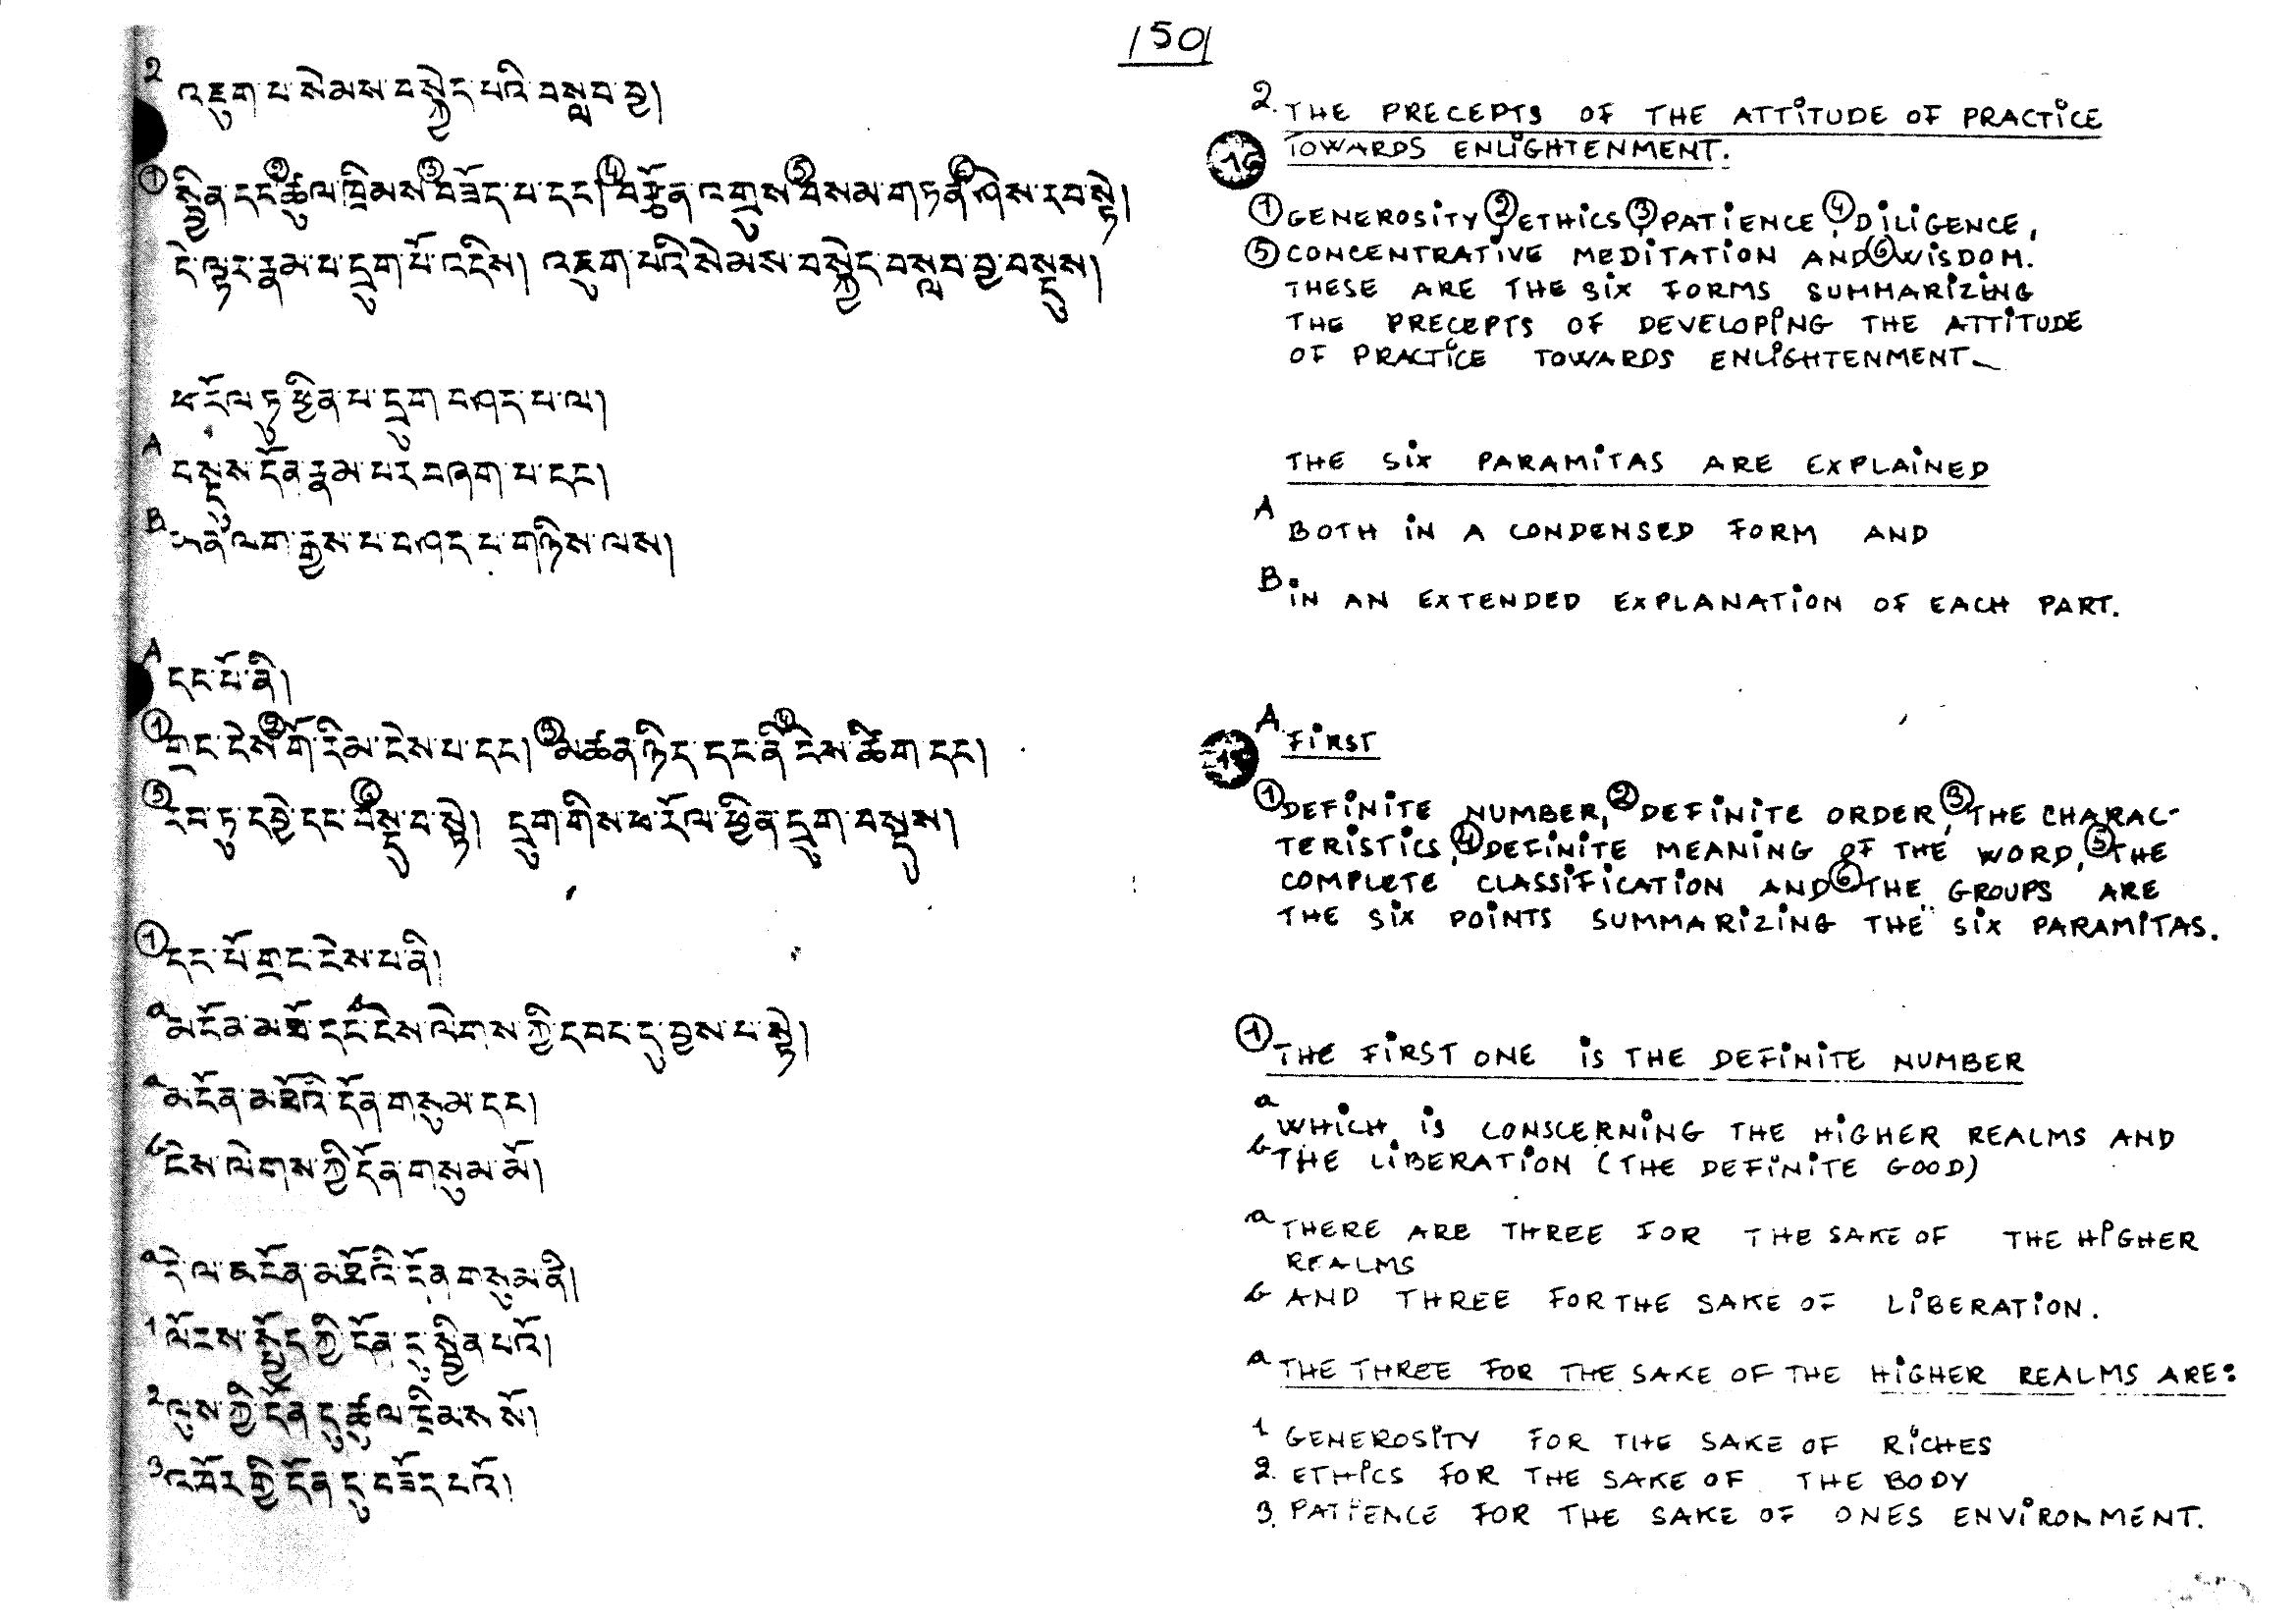 150
2 འཇུག་པ་སེམས་བསྐྱེད་པའི་བསླབ་བྱ།
① སྦྱིན་དང་②ཚུལ་ཁྲིམས་③བཟོད་པ་དང།④བརྩོན་འགྲུས་⑤བསམ་གཏན་⑥ཤེས་རབ་སྟེ།
དེ་ལྟར་རྣམ་པ་དྲུག་པོ་འདིས། འཇུག་པའི་སེམས་བསྐྱེད་བསླབ་བྱ་བསྡུས།
ཕ་རོལ་ཏུ་ཕྱིན་པ་དྲུག་བཤད་པ་ལ།
A བསྡུས་དོན་རྣམ་པར་བཞག་པ་དང།
B ཡན་ལག་རྒྱས་པ་བཤད་པ་གཉིས་ལས།
A དང་པོ་ནི།
① གྲང་ངེས་②གོ་རིམ་ངེས་པ་དང། ③མཚན་ཉིད་དང་ནི་④ངེས་ཚིག་དང།
⑤ རབ་ཏུ་དབྱེ་དང་⑥བསྡུ་བ་སྟེ། དྲུག་གིས་ཕ་རོལ་ཕྱིན་དྲུག་བསྡུས།
① དང་པོ་གྲང་ངེས་པ་ནི།
a མངོན་མཐོ་དང་ངེས་ལེགས་ཀྱི་དབང་དུ་བྱས་པ་སྟེ།
a མངོན་མཐོའི་དོན་གསུམ་དང།
b ངེས་ལེགས་ཀྱི་དོན་གསུམ་མོ།
a དེ་ལ་མངོན་མཐོའི་དོན་གསུམ་ནི།
1 ལོངས་སྤྱོད་ཀྱི་དོན་དུ་སྦྱིན་པའོ།
2 ལུས་ཀྱི་དོན་དུ་ཚུལ་ཁྲིམས་སོ།
3 འཁོར་གྱི་དོན་དུ་བཟོད་པའོ།
2. THE PRECEPTS OF THE ATTITUDE OF PRACTICE
TOWARDS ENLIGHTENMENT.
① GENEROSITY, ② ETHICS, ③ PATIENCE, ④ DILIGENCE,
⑤ CONCENTRATIVE MEDITATION AND ⑥ WISDOM.
THESE ARE THE SIX FORMS SUMMARIZING
THE PRECEPTS OF DEVELOPING THE ATTITUDE
OF PRACTICE TOWARDS ENLIGHTENMENT
THE SIX PARAMITAS ARE EXPLAINED
A BOTH IN A CONDENSED FORM AND
B IN AN EXTENDED EXPLANATION OF EACH PART.
A FIRST
① DEFINITE NUMBER, ② DEFINITE ORDER, ③ THE CHARAC-
TERISTICS, ④ DEFINITE MEANING OF THE WORD, ⑤ THE
COMPLETE CLASSIFICATION AND ⑥ THE GROUPS ARE
THE SIX POINTS SUMMARIZING THE SIX PARAMITAS.
① THE FIRST ONE IS THE DEFINITE NUMBER
a WHICH IS CONSCERNING THE HIGHER REALMS AND
b THE LIBERATION (THE DEFINITE GOOD)
a THERE ARE THREE FOR THE SAKE OF THE HIGHER
REALMS
b AND THREE FOR THE SAKE OF LIBERATION.
a THE THREE FOR THE SAKE OF THE HIGHER REALMS ARE:
1 GENEROSITY FOR THE SAKE OF RICHES
2. ETHICS FOR THE SAKE OF THE BODY
3. PATIENCE FOR THE SAKE OF ONES ENVIRONMENT.